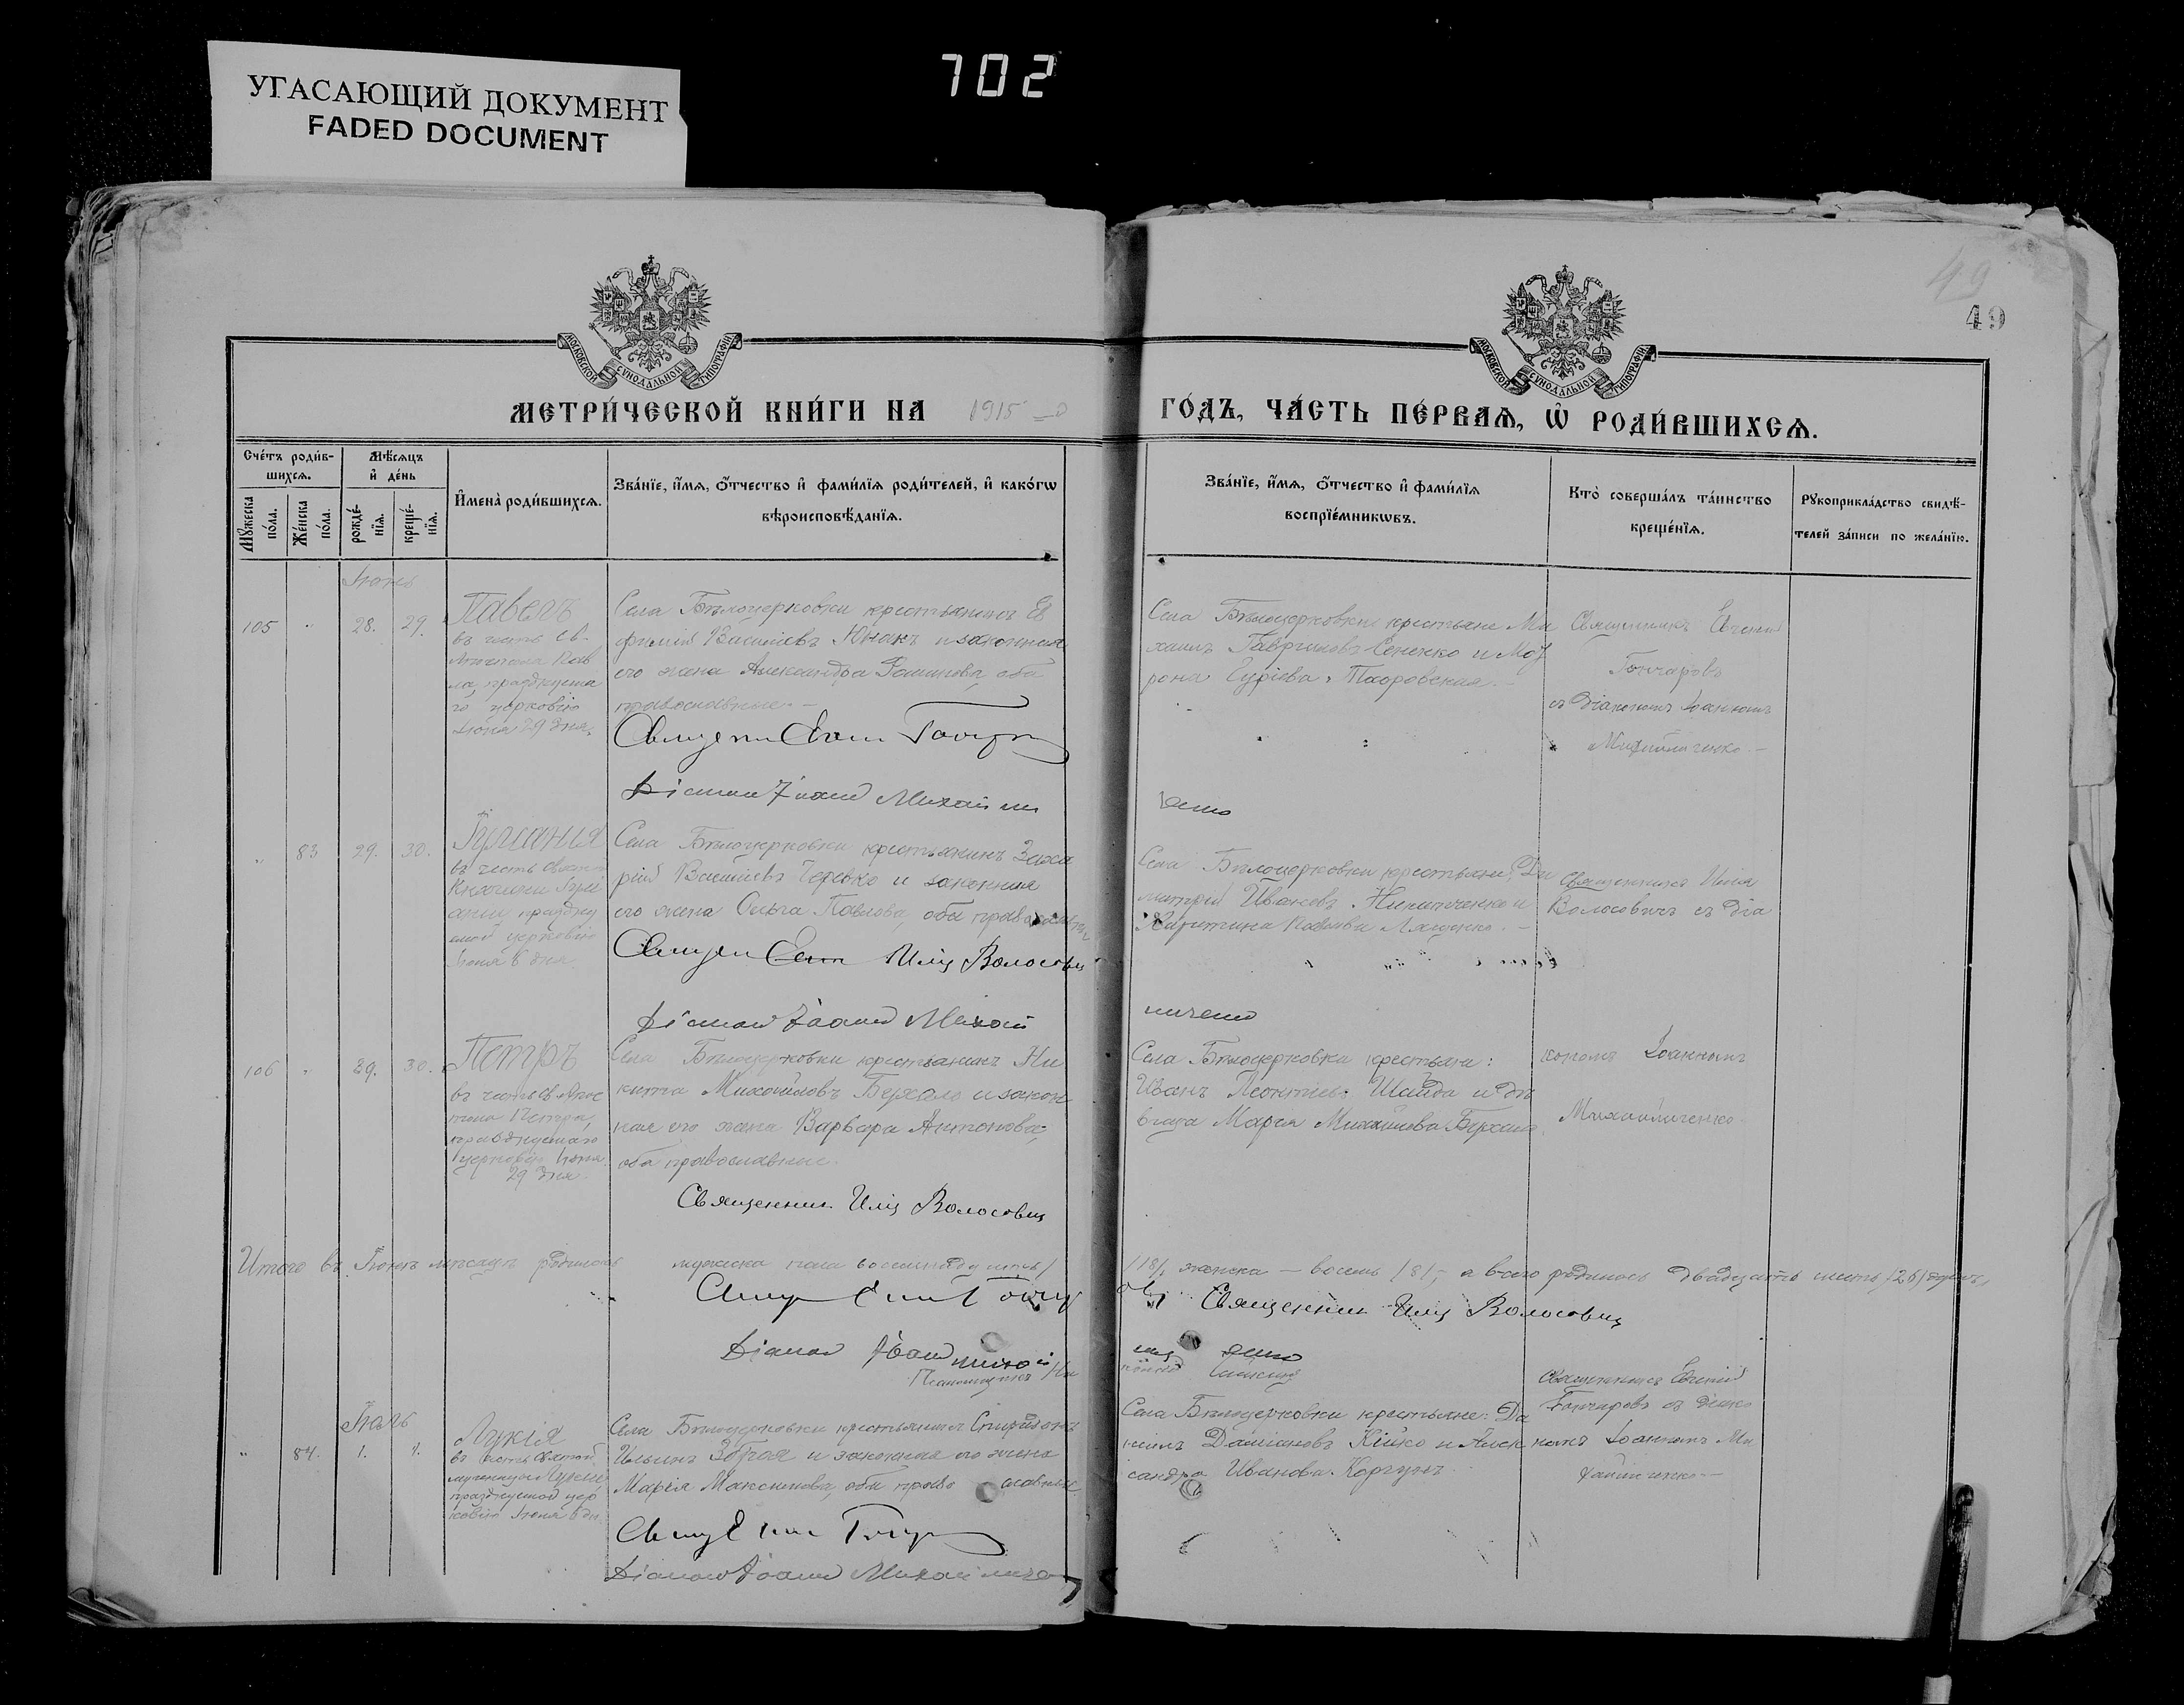 702
УГАСАЮЩИЙ ДОКУМЕНТ
FADED DOCUMENT
49
49
МОСКОВСКОЙ СѴНОДАЛЬНОЙ ТИПОГРАФІИ
МОСКОВСКОЙ СѴНОДАЛЬНОЙ ТИПОГРАФІИ
МЕТРИ́ЧЕСКОЙ КНИ́ГИ НА 1915
ГО́ДЪ, ЧА́СТЬ ПЕ́РВАѦ, Ѡ҆ РОДИ́ВШИХСѦ.
Сче́тъ роди́в-
шихсѧ.
Мꙋ́жеска по́ла.
Же́нска по́ла.
Мѣ́сѧцъ
и҆ де́нь
рожде́-нїѧ.
креще́-нїѧ.
И҆мена̀ роди́вшихсѧ.
Зва́нїе, и҆́мѧ, ѻ҆́тчество и҆ фами́лїѧ роди́телей, и҆ како́гѡ
вѣроисповѣ́данїѧ.
Зва́нїе, и҆́мѧ, ѻ҆́тчество и҆ фами́лїѧ
воспрїе́мникѡвъ.
Кто̀ соверша́лъ та́инство
креще́нїѧ.
Рꙋкоприкла́дство свидѣ́-
телей за́писи по жела́нїю.
Іюнь
105 " 28. 29.
Павелъ
въ честь св.
Апостола Пав
ла, празднуема
го церковію
Іюня 29 дня.
Села Бѣлоцерковки крестьянинъ Ев
фимій Василіевъ Юнакъ и законная
его жена Александра оба
православные.
Діаконъ Іоаннъ Михайли
ченко
Села Бѣлоцерковки крестьяне Ми
хаилъ Гавриловъ Сененко и Мат
рона Гуріева
Священникъ Евгений
Гончаровъ
съ Діакономъ Іоанномъ
Михайличенко.
" 83 29. 30.
Іуліанія
въ честь святой
Княгини Іулі
аніи празднуе
мой церковію
Села Бѣлоцерковки крестьянинъ Заха
рій Василіевъ Черевко и законная
его жена Ольга Павлова, оба православные
Илія Волосовичъ
Діаконъ Іоаннъ Михай
личенко
Села Бѣлоцерковки крестьяне: Ди
митрій Ивановъ Никитченко и
Харитина Павлова Ляшенко.
Священникъ Илія
Волосовичъ съ Діа
кономъ Іоанномъ
Михайличенко.
106 " 29. 30.
Петръ
въ честь св. Апос
тола Петра,
празднуемаго
церковію Іюня
29 дня.
Села Бѣлоцерковки крестьянинъ Ни
кита Михайловъ Берхало и закон
ная его жена Варвара Антонова,
оба православные.
Священникъ Илія Волосовичъ
Села Бѣлоцерковки крестьяне:
Иванъ Леонтіевъ Шайда и дѣ
вица Марія Михайлова Берхало.
Итого въ Іюнѣ мѣсяцѣ родилось мужеска пола восемнадцать /18/, женска — восемь /8/, а всего родилось двадцать шесть /26/ душъ.
Священникъ Илія Волосовичъ
Діаконъ Іоаннъ Михай
личенко
Псаломщикъ
Іюль
" 84. 1. 1.
Лукія
въ честь святой
мученицы Лукіи
празднуемой цер
ковію
Села Бѣлоцерковки крестьянинъ Спиридонъ
Ильинъ и законная его жена
Марія Максимова, оба православные.
Діаконъ Іоаннъ Михайличен
Села Бѣлоцерковки крестьяне: Да
ніилъ Даміановъ и Алек
сандра Иванова
Священникъ Евгений
Гончаровъ съ Діако
номъ Іоанномъ Ми
хайличенко